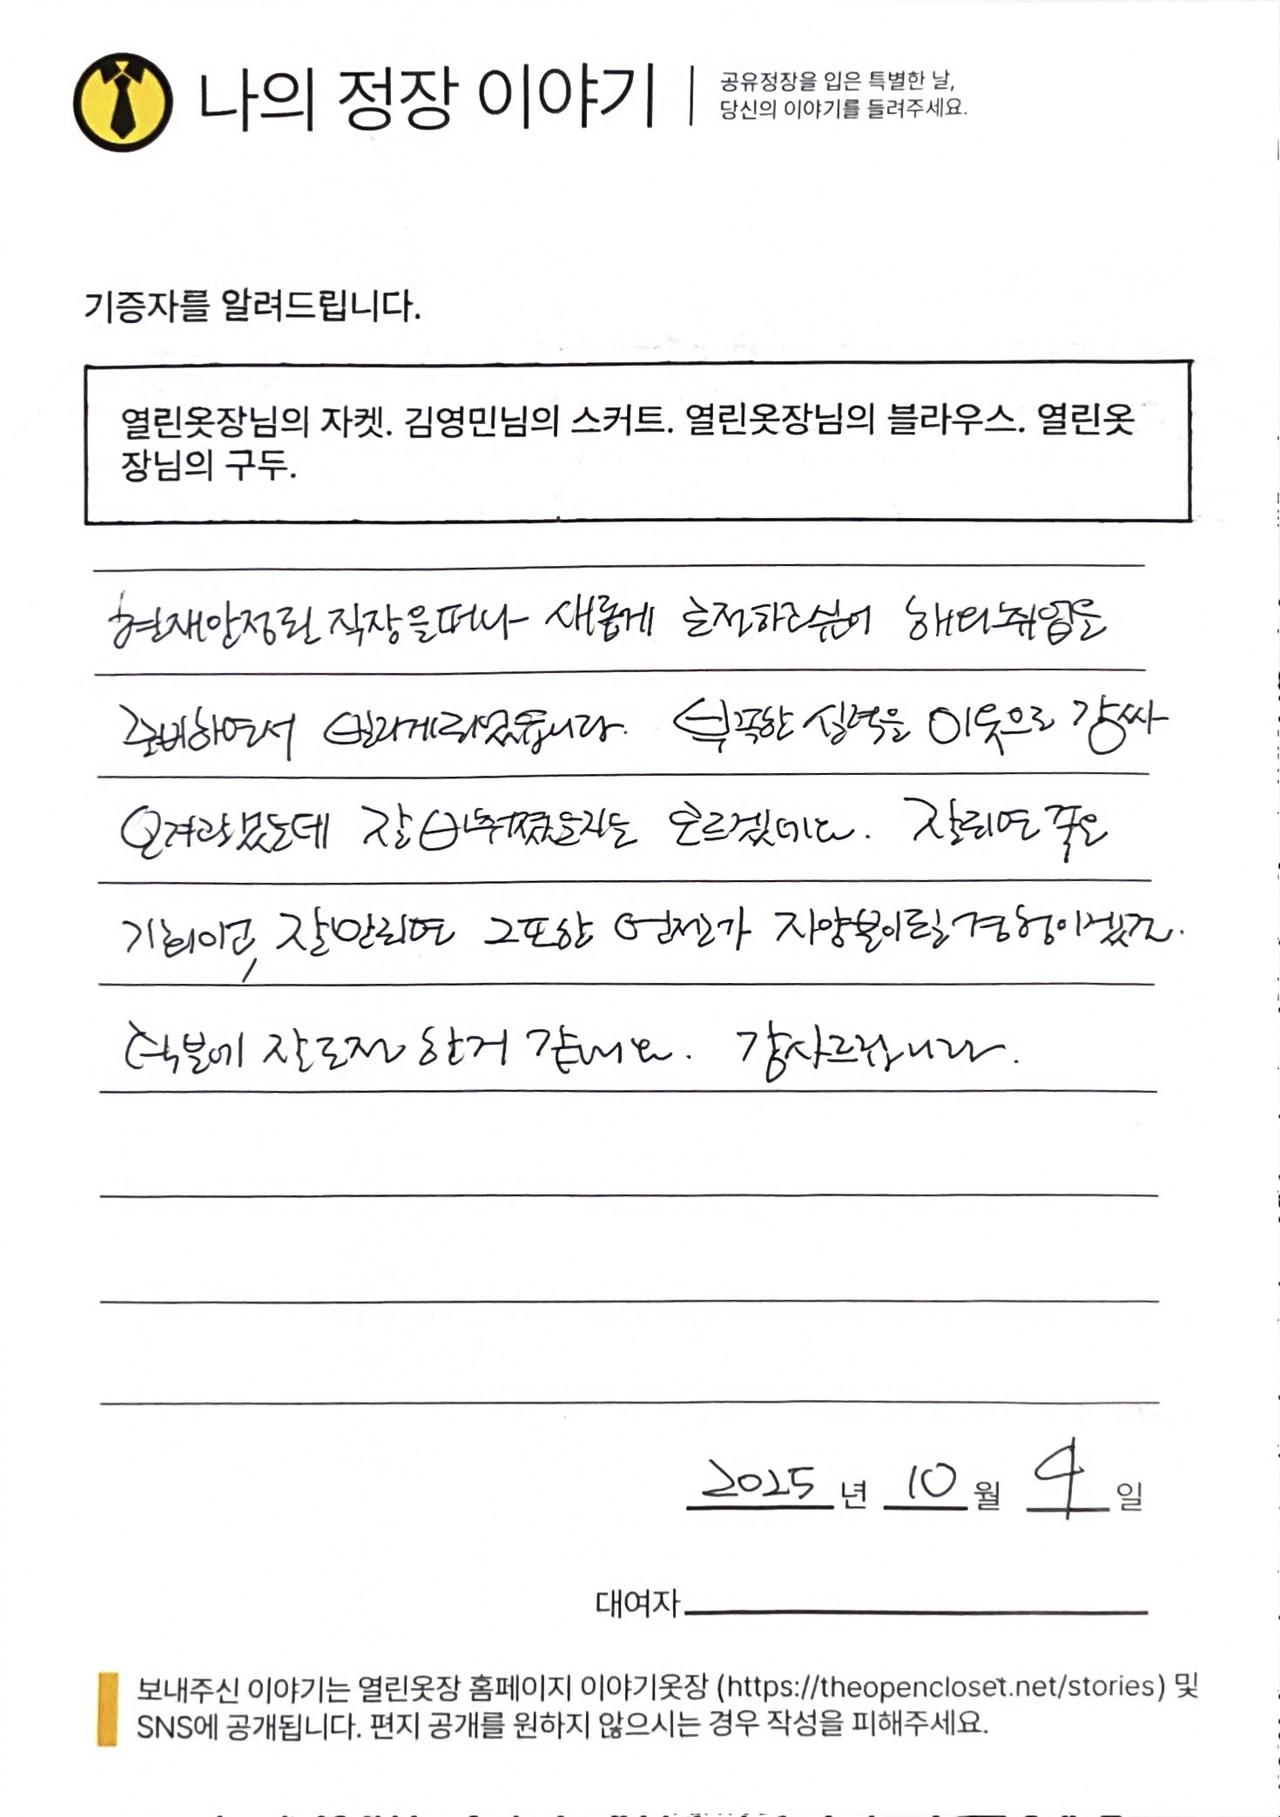 나의 정장 이야기
공유정장을 입은 특별한 날,
당신의 이야기를 들려주세요.
기증자를 알려드립니다.
열린옷장님의 자켓. 김영민님의 스커트. 열린옷장님의 블라우스. 열린옷
장님의 구두.
현재 안정된 직장을 떠나 새롭게 도전하고 싶어 해외취업을
준비하면서 빌리게되었습니다. 부족한 실력을 이옷으로 감싸
오려했는데 잘 비춰졌을지는 모르겠네요. 잘되면 좋은
기회이고, 잘 안되면 그또한 언젠가 자양분이 될 경험이겠죠.
덕분에 잘 도전 한거 같네요. 감사드립니다.
2025 년 10 월 4 일
대여자
보내주신 이야기는 열린옷장 홈페이지 이야기옷장 (https://theopencloset.net/stories) 및
SNS에 공개됩니다. 편지 공개를 원하지 않으시는 경우 작성을 피해주세요.